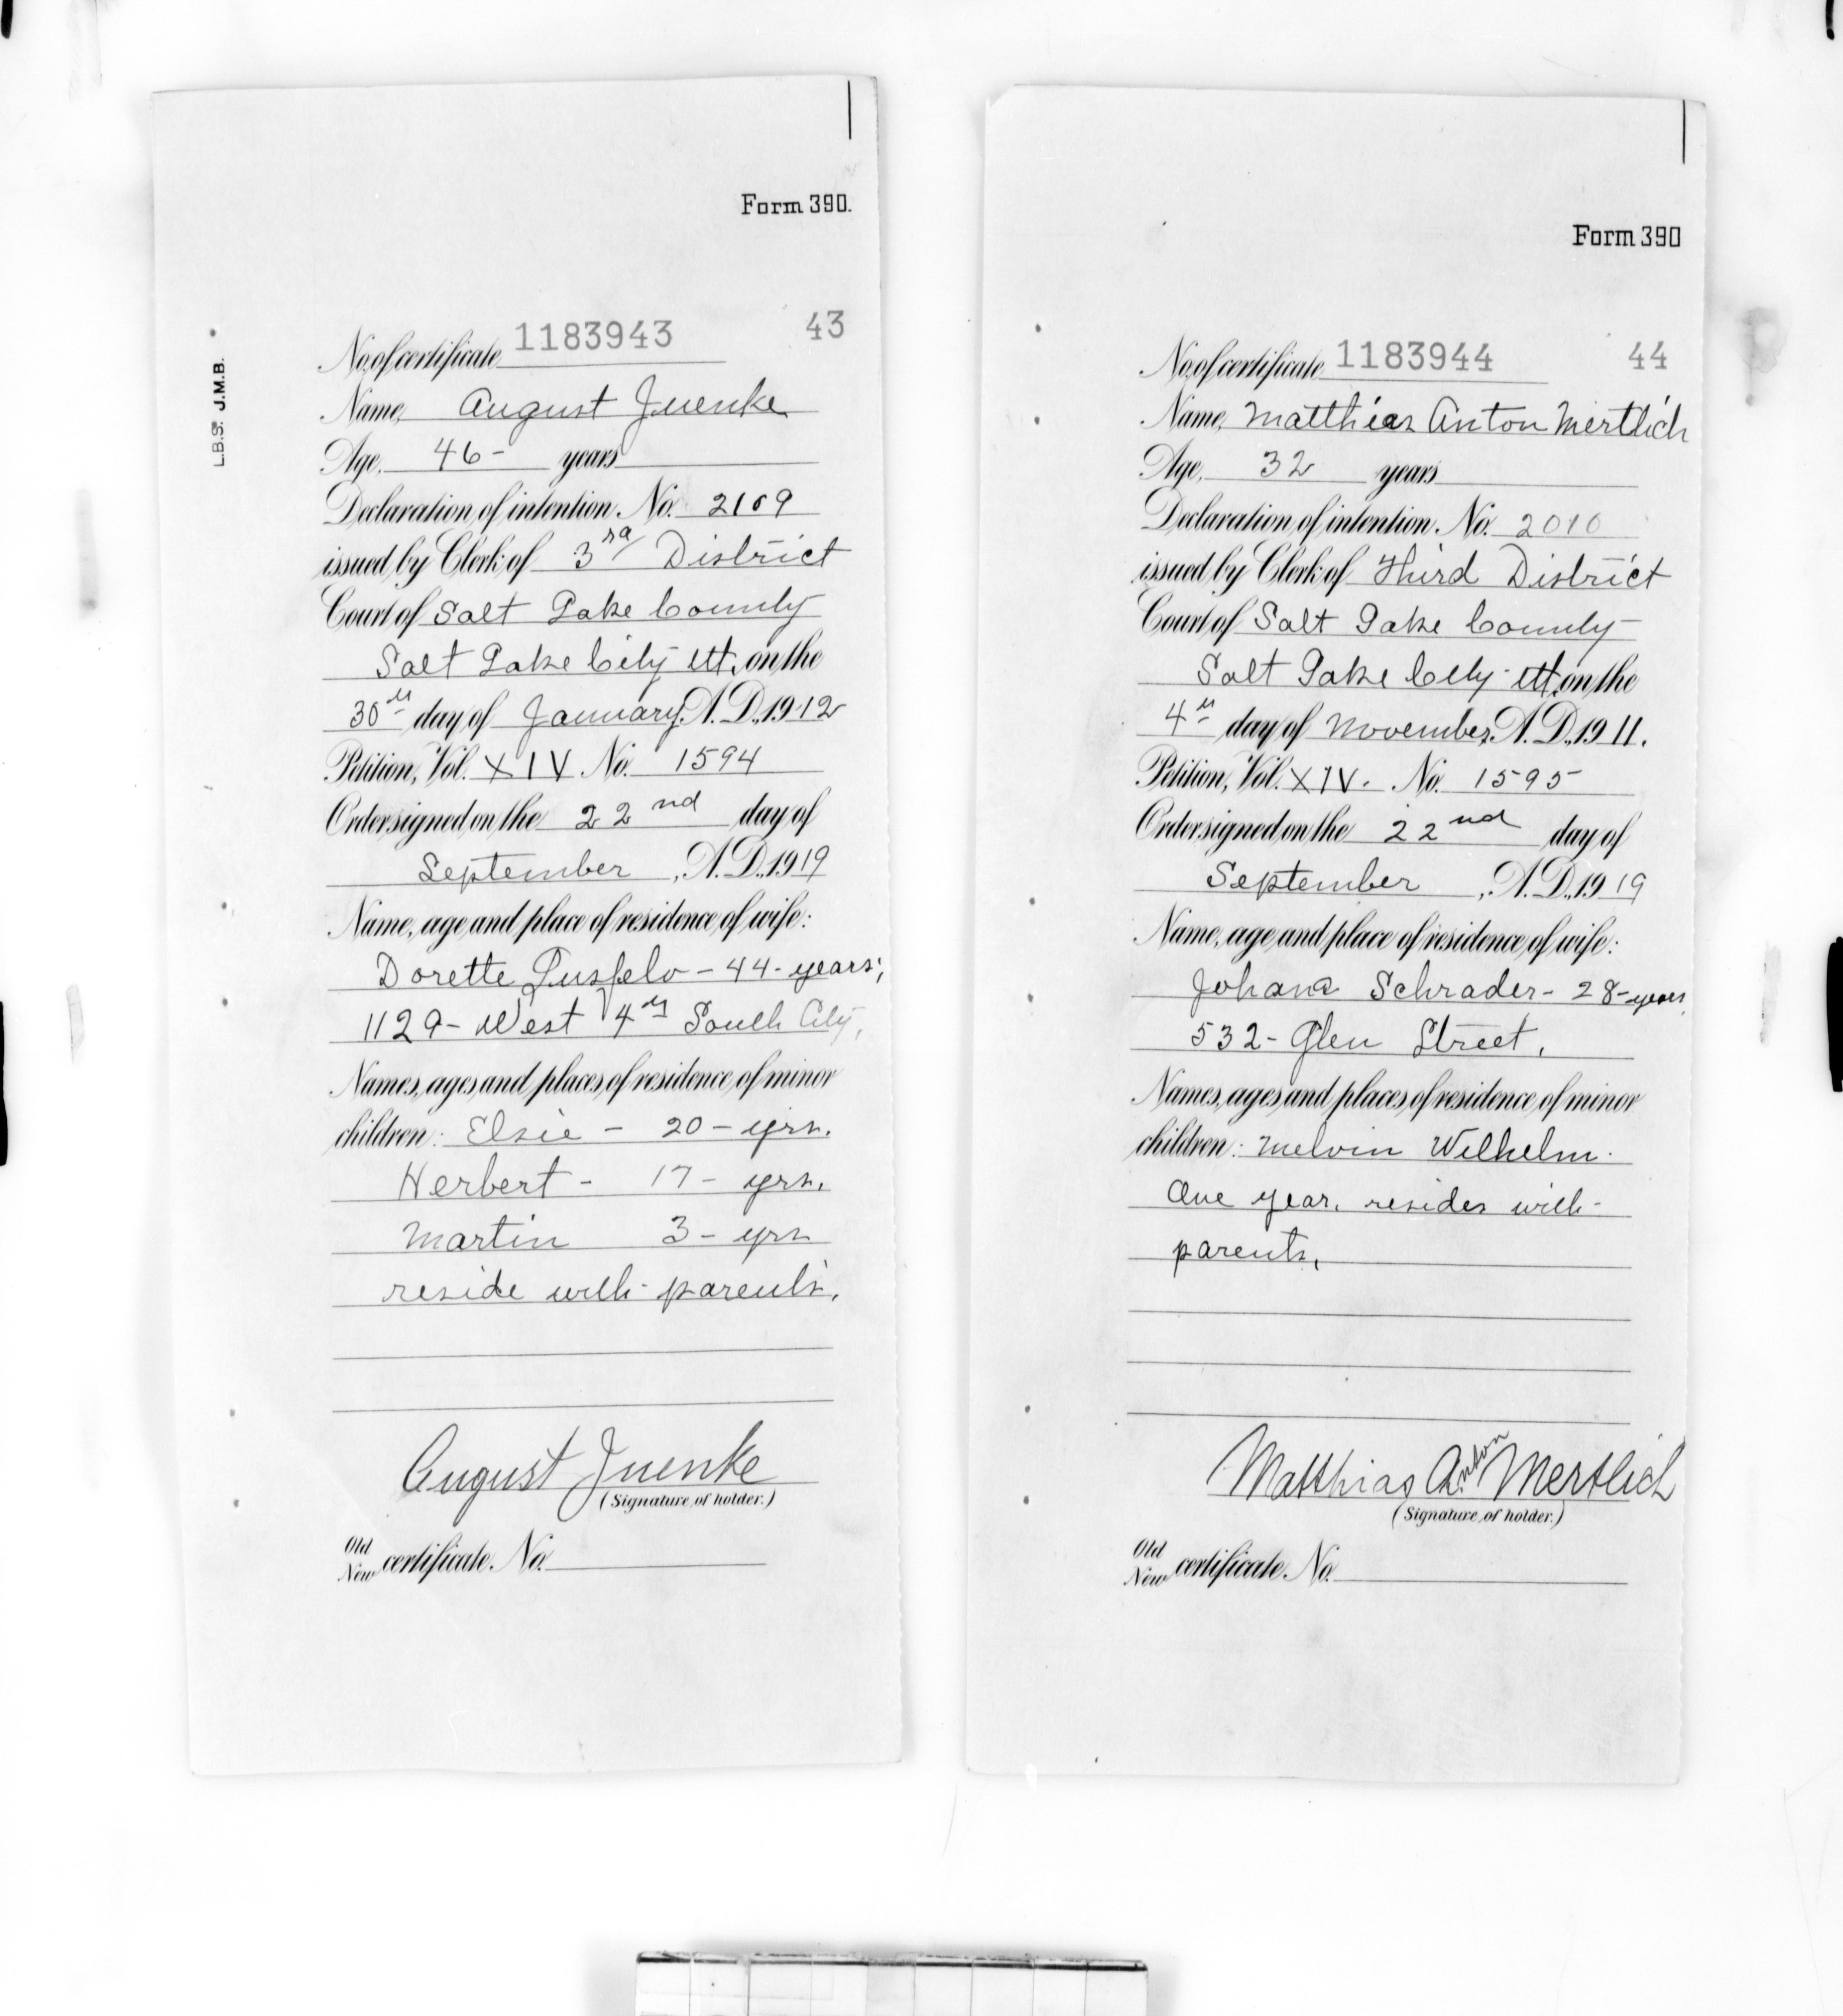 Form 390.
L.B.S. J.M.B.
No. of certificate 1183943 43
Name, August Juenke
Age, 46 - years
Declaration of intention No. 2169
issued by Clerk of 3rd District
Court of Salt Lake County
Salt Lake City Ut. on the
30th day of January A.D. 1912
Petition, Vol. XIV No. 1594
Order signed on the 22nd day of
September, A.D. 1919
Name, age and place of residence of wife:
Dorette - 44 - years;
1129 - West 4th South City,
Names, ages and places of residence of minor
children: Elsie - 20 - yrs.
Herbert - 17 - yrs.
Martin 3 - yrs
reside with parents.
August Juenke
(Signature of holder.)
Old
New certificate No.
Form 390
No. of certificate 1183944 44
Name, Matthias Anton Mertlich
Age, 32 years
Declaration of intention No. 2010
issued by Clerk of Third District
Court of Salt Lake County
Salt Lake City Ut. on the
4th day of November, A.D. 1911.
Petition, Vol. XIV. No. 1595
Order signed on the 22nd day of
September, A.D. 1919
Name, age and place of residence of wife:
Johana Schrader - 28 - years,
532 - Glen Street.
Names, ages and places of residence of minor
children: Melvin Wilhelm.
One year. resides with
parents,
Matthias Anton Mertlich
(Signature of holder.)
Old
New certificate No.